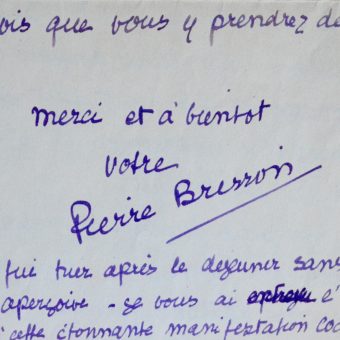 ois que vous y prendrez de
merci et à bientot
votre
Pierre Bresson
fui tuer après le dejeuner sans
aperçoive - je vous ai
cette étonnante manifestation coc